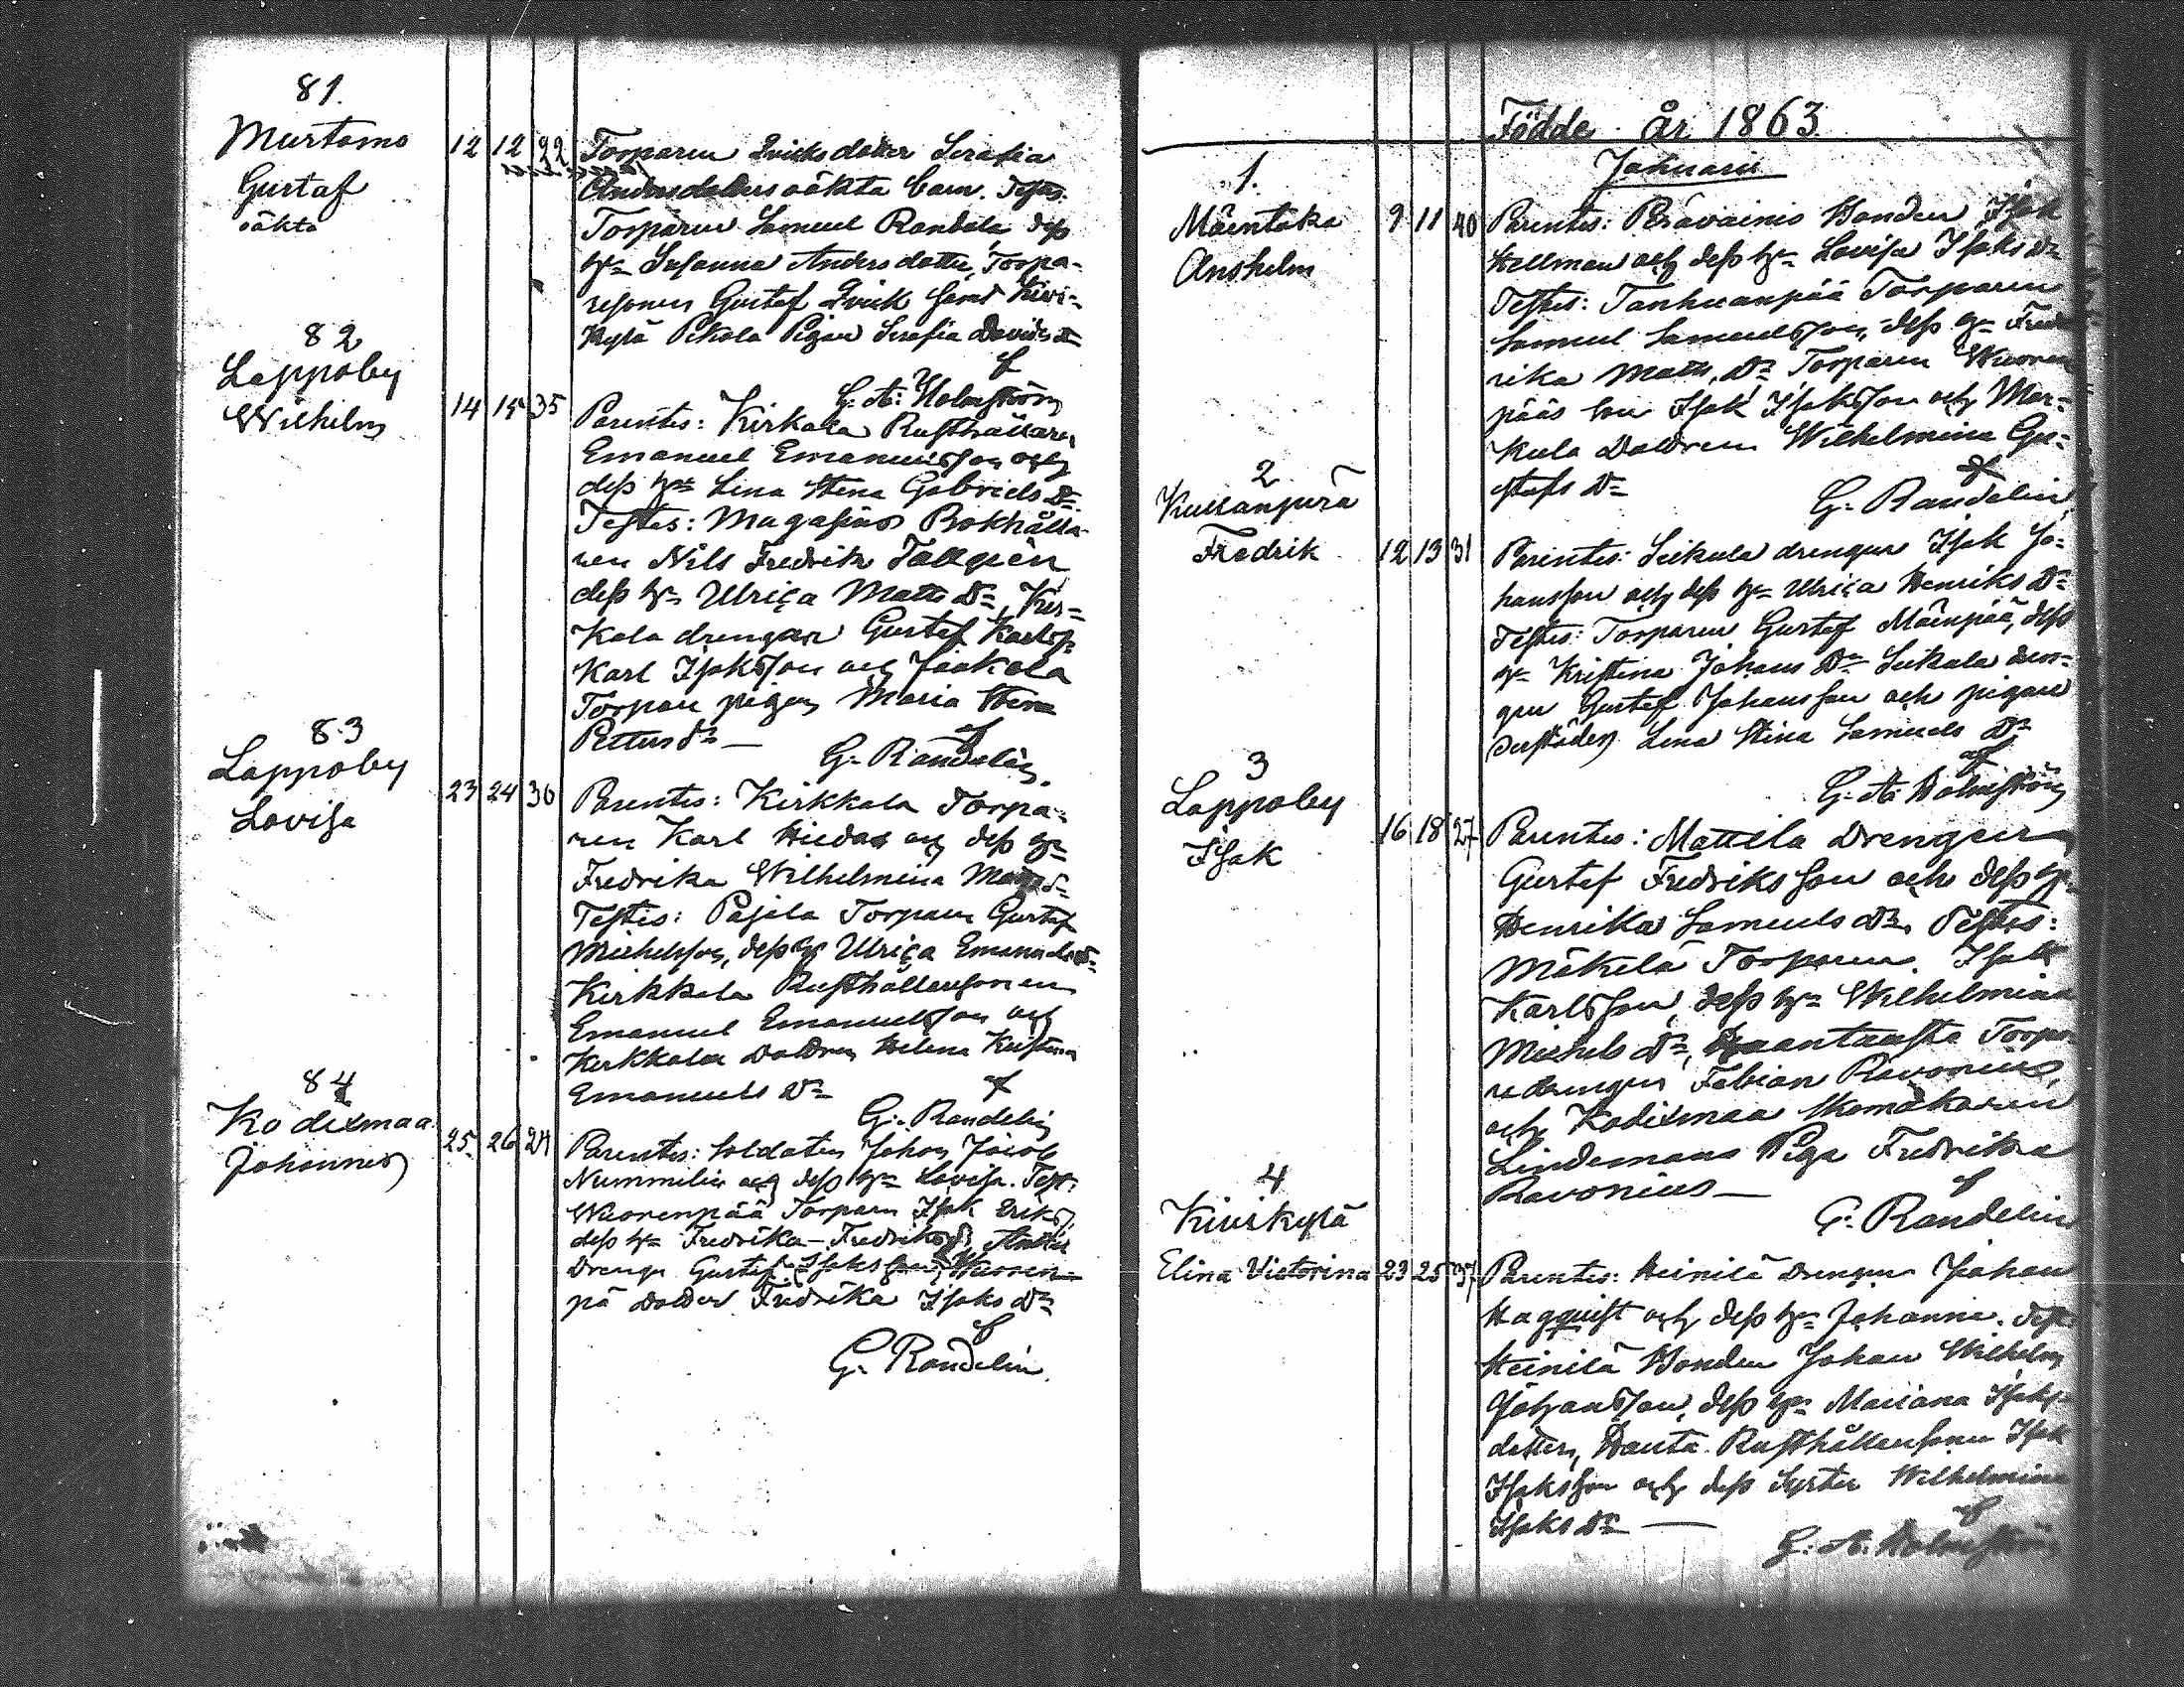 81.
Murtamo
Gustaf
oäkta
12 12 22
Torparen Qvicks dotter Serafia
Andersdotters oäkta barn. Testes:
Torparen Samuel Randala, dess
h:u Susanna Andersdotter, Torpa-
resonen Gustaf Qvick samt Kivi-
kylä Pekola Pigan Serafia Davids D:r
af
G. A. Holmström
82
Lappoby
Wilhelm
14 15 35
Parentes: Kirkala Rusthållaren
Emanuel Emanuelsson och
dess h:u Lina Stina Gabriels D:r
Testes: Magasins Bokhålla-
ren Nils Fredrik Tallgrén
dess h:u Ulrica Matts D:r, Kir-
kala drengar Gustaf Karlss:
Karl Isaksson och Jaakola
Torpare pigan Maria Stina
Petters d:r
af
G. Randelin.
83
Lappoby
Lovisa
23 24 36
Parentes: Kirkkala Torpa-
ren Karl Hiedas och dess h:u
Fredrika Wilhelmina
Testes: Pajala Torparen Gustaf
Michelsson, dess h:u Ulrica Emanuels D:r
Kirkkala Rusthållaresonen
Emanuel Emanuelsson och
Kirkkala Dottren Helena Kristina
Emanuels D:r
af
G. Randelin
84
Kodixmaa
Johannes
25 26 24
Parentes: Soldaten Johan Jacob
Nummelin och dess h:u Lovisa. Test:
Wuorenpää Torparen Isak Eriks:
dess h:u Fredrika Fredriks D:r
Drengen Gustaf Isaksson, Wuoren-
pä Dotter Fredrika Isaks D:r
af
G. Randelin.
Födde år 1863
Januarii
1.
Mäentaka
Anshelm
9 11 40
Parentes: Perävainio Bonden Isak
Hellman och dess h:u Lovisa Isaks D:r
Testes: Tanhuanpää Torparen
Samuel Samuelsson, dess h:u Fred-
rika Matts D:r Torparen Wuoren
pääs son Isak Isaksson och Mar-
kula Dottren Wilhelmina Gu-
stafs D:r
af
G. Randelin
2
Kullanperä
Fredrik
12 13 31
Parentes: Seikula drengen Isak Jo-
hansson och dess h:u Ulrica Henriks D:r
Testes: Torparen Gustaf Mäenpää, dess
h:u Kristina Johans D:r Seikula dren-
gen Gustaf Johansson och pigan
derstädes Lena Stina Samuels D:r
af
G. A. Holmström
3
Lappoby
Isak
16 18 27
Parentes: Mattila Drengen
Gustaf Fredriksson och dess h:u
Henrika Samuels D:r. Testes:
Mäkelä Torparen Isak
Karlsson, dess h:u Wilhelmina
Michels D:r, Torpa-
redrengen Fabian Ravonius,
och Kodixmaa Skomakaren
Lindemans Piga Fredrika
Ravonius
af
G. Randelin
4
Kiviskylä
Elina Victorina
23 25 37
Parentes: Heinilä Drengen Johan
Hagquist och dess h:u Johanna. Test:
Heinilä Bonden Johan Wilhelm
Johansson, dess h:u Mariana Isaks-
dotter, Rusthållaresonen Isak
Isaksson och dess Syster Wilhelmina
Isaks D:r
af
G. A. Holmström